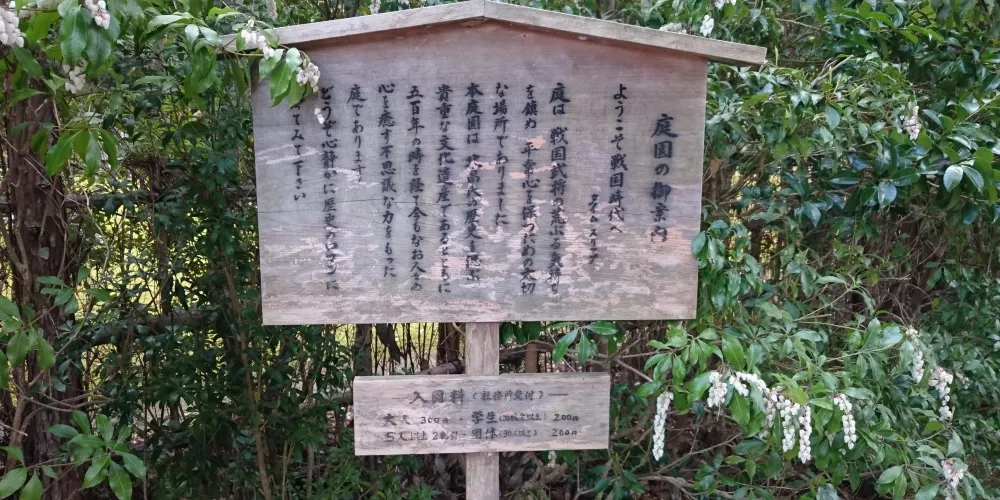 庭園の御案内
ようこそ戦国時代へ
タイムスリップ
庭は 戦国武将の荒ぶる気持ち
を鎮め 平常心を保つための大切
な場所でありました
本庭園は の歴史を偲ぶ
貴重な文化遺産であるとともに
五百年の時を経て今もなお人々の
心を癒す不思議な力をもった
庭であります
どうぞ心静かに歴史のロマンに
てみて下さい
入園料(社務所受付)
大人 300円 学生 200円
5人以上2割引 団体(30人以上) 200円